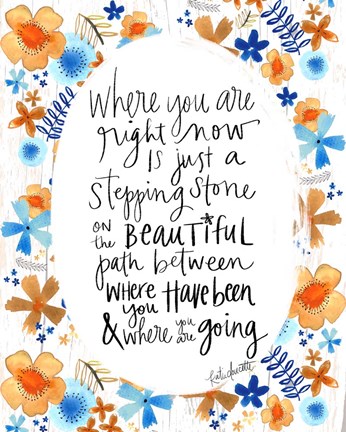 Where you are
right now
Is just a
Stepping stone
on the BEAUTIFUL
path between
WHERE you Have been
& where you are going